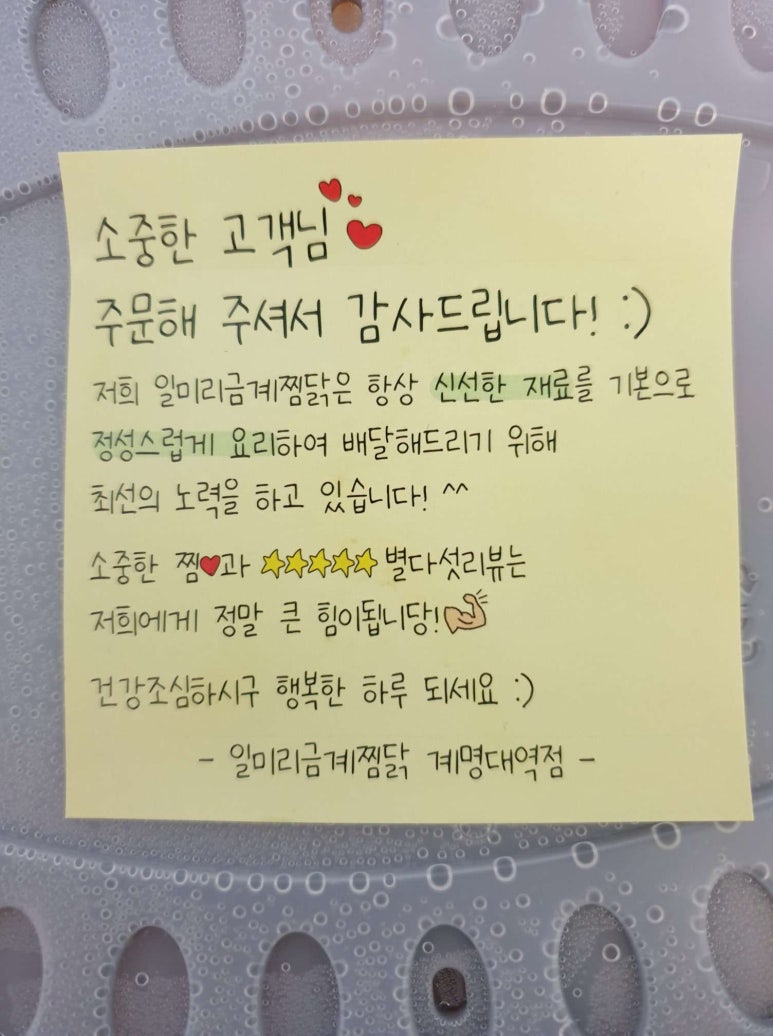 소중한 고객님
주문해 주셔서 감사드립니다! :)
저희 일미리금계찜닭은 항상 신선한 재료를 기본으로
정성스럽게 요리하여 배달해드리기 위해
최선의 노력을 하고 있습니다! ^^
소중한 찜♥과 ★★★★★ 별다섯리뷰는
저희에게 정말 큰 힘이됩니당!
건강조심하시구 행복한 하루 되세요 :)
- 일미리금계찜닭 계명대역점 -